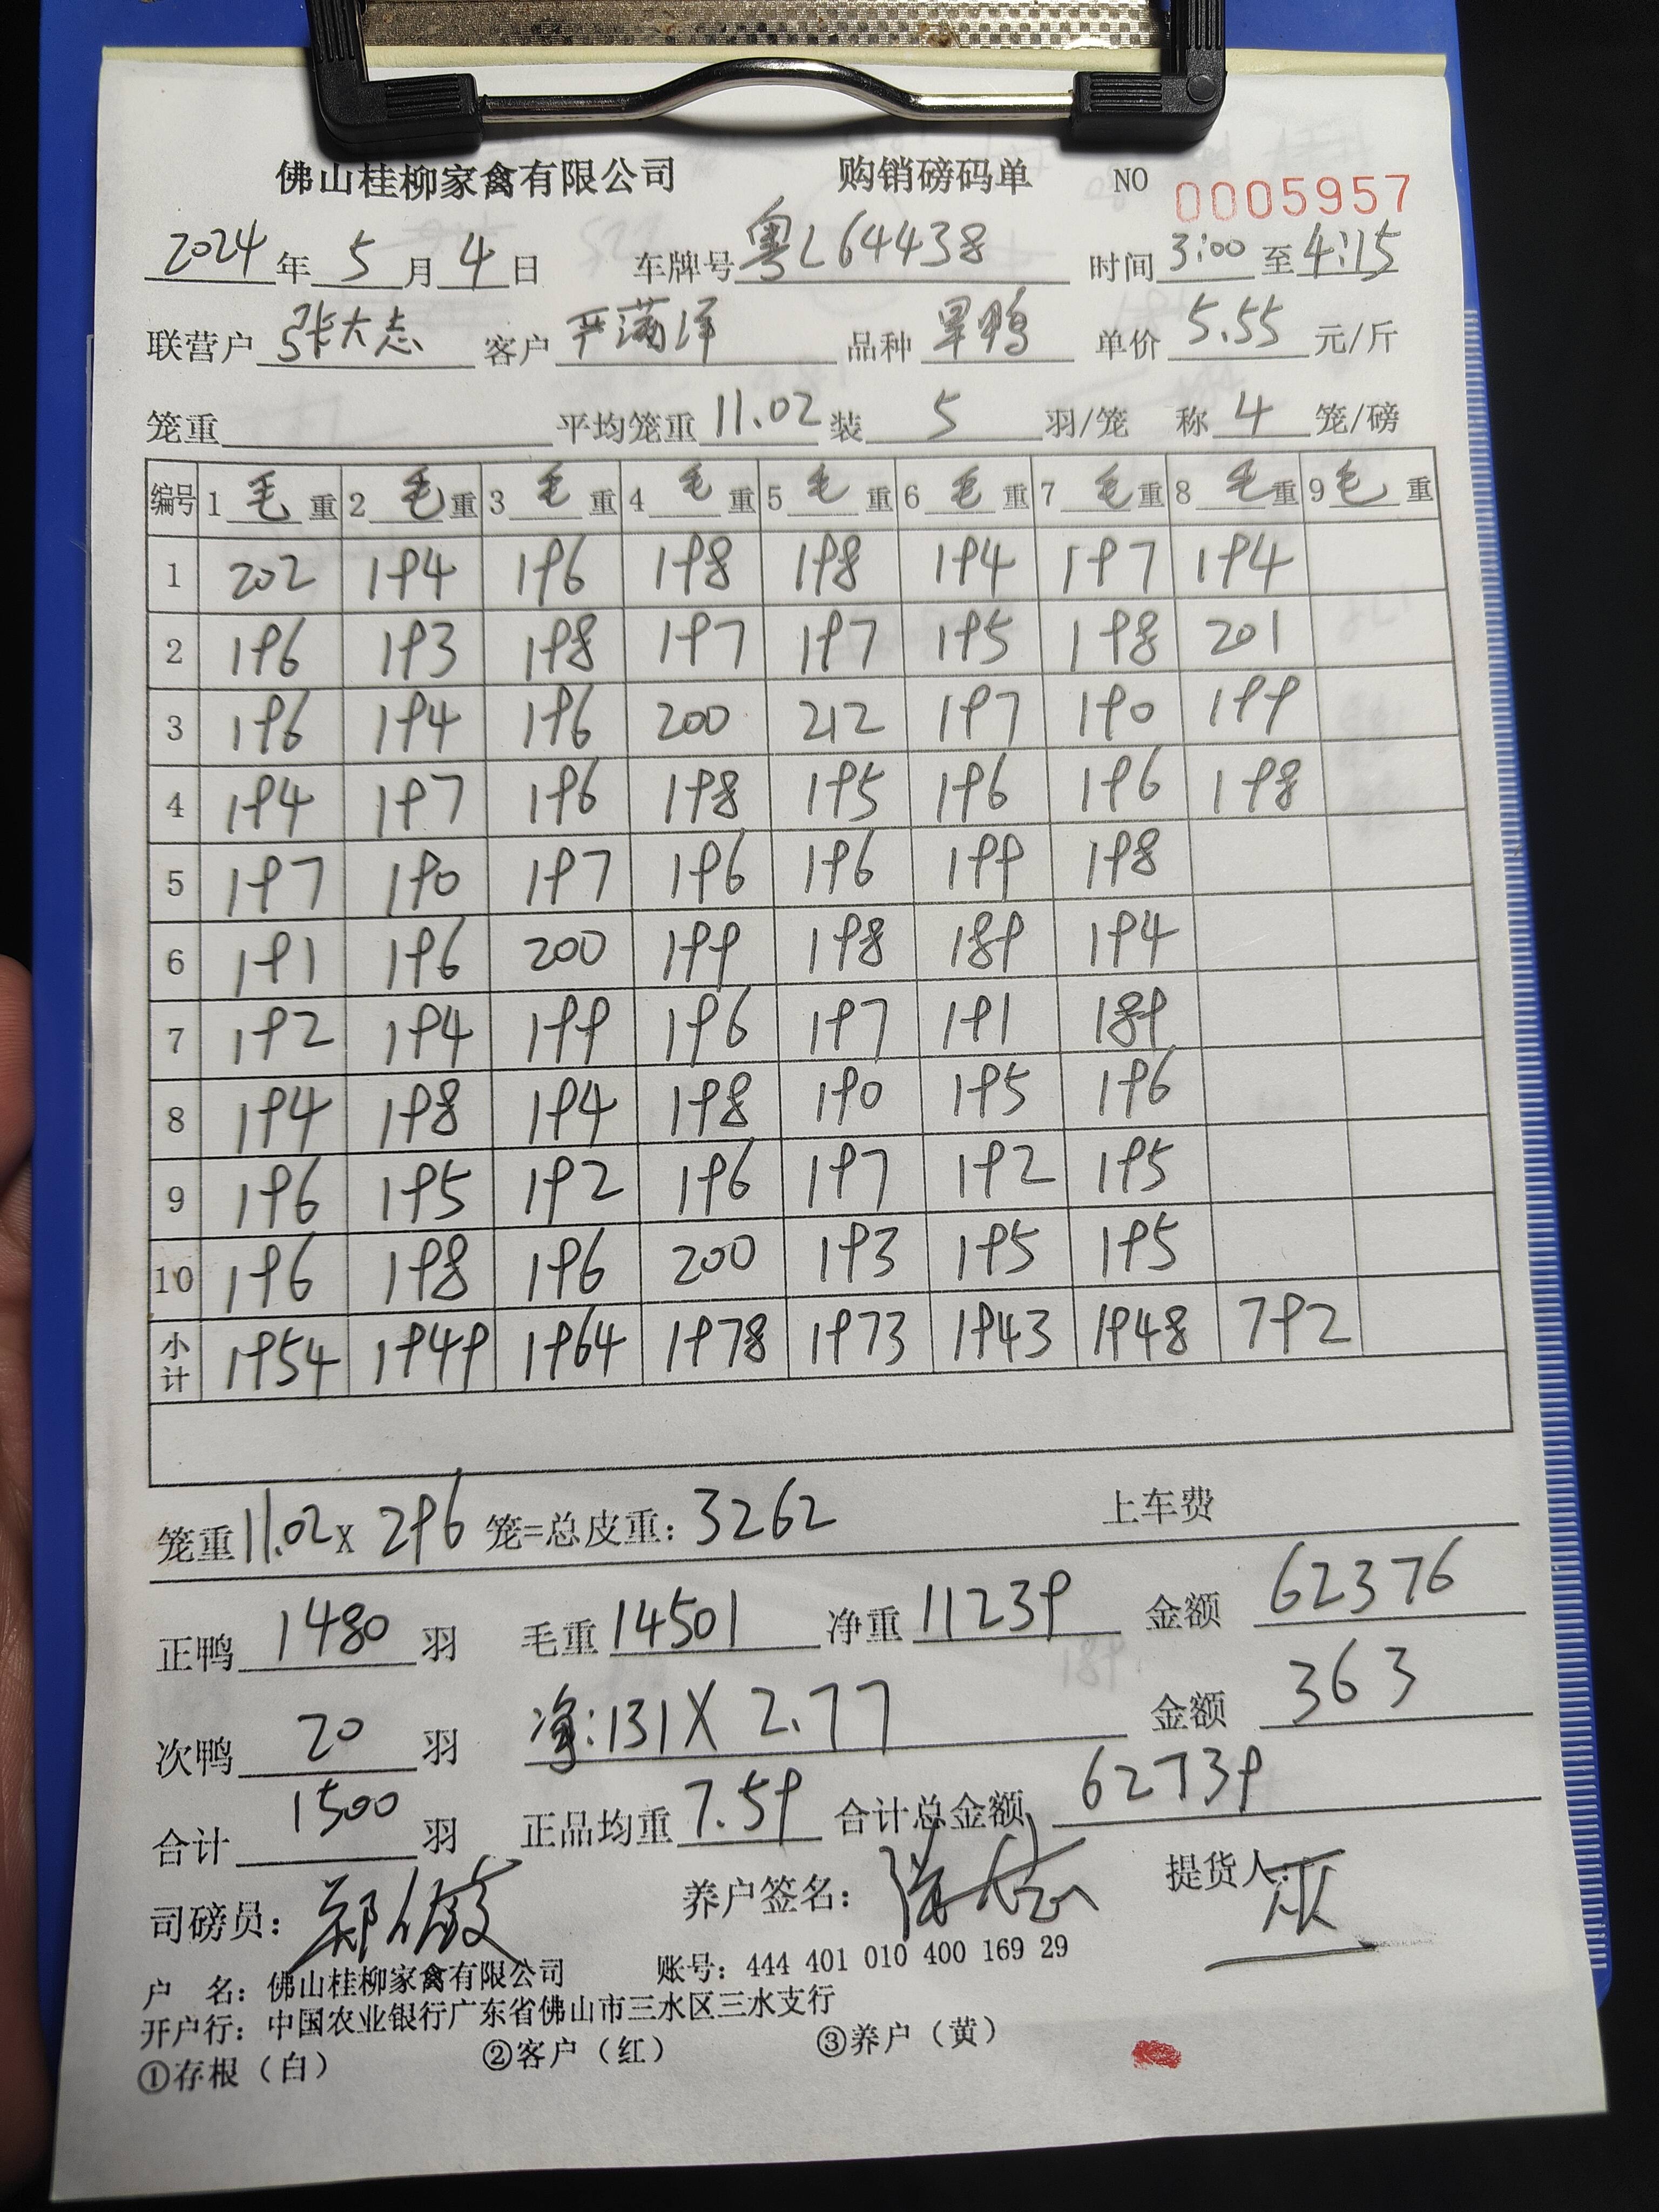 佛山桂柳家禽有限公司 购销磅码单 NO 0005957
2024年5月4日 车牌号粤L64438 时间3:00至4:15
联营户张大志 客户严满洋 品种旱鸭 单价5.55元/斤
笼重 平均笼重11.02装5羽/笼 称4笼/磅
编号 1毛重 2毛重 3毛重 4毛重 5毛重 6毛重 7毛重 8毛重 9毛重
1 202 194 196 198 198 194 197 194
2 196 193 198 197 197 195 198 201
3 196 194 196 200 212 197 190 199
4 194 197 196 198 195 196 196 198
5 197 190 197 196 196 199 198
6 191 196 200 199 198 189 194
7 192 194 199 196 197 191 189
8 194 198 194 198 190 195 196
9 196 195 192 196 197 192 195
10 196 198 196 200 193 195 195
小计 1954 1949 1964 1978 1973 1943 1948 792
笼重11.02x296笼=总皮重:3262 上车费
正鸭1480羽 毛重14501净重11239 金额62376
次鸭20羽 净:131X2.77 金额363
合计1500羽 正品均重7.59合计总金额62739
司磅员: 养户签名: 提货人:
户 名:佛山桂柳家禽有限公司 账号:444 401 010 400 169 29
开户行:中国农业银行广东省佛山市三水区三水支行
①存根(白) ②客户(红) ③养户(黄)